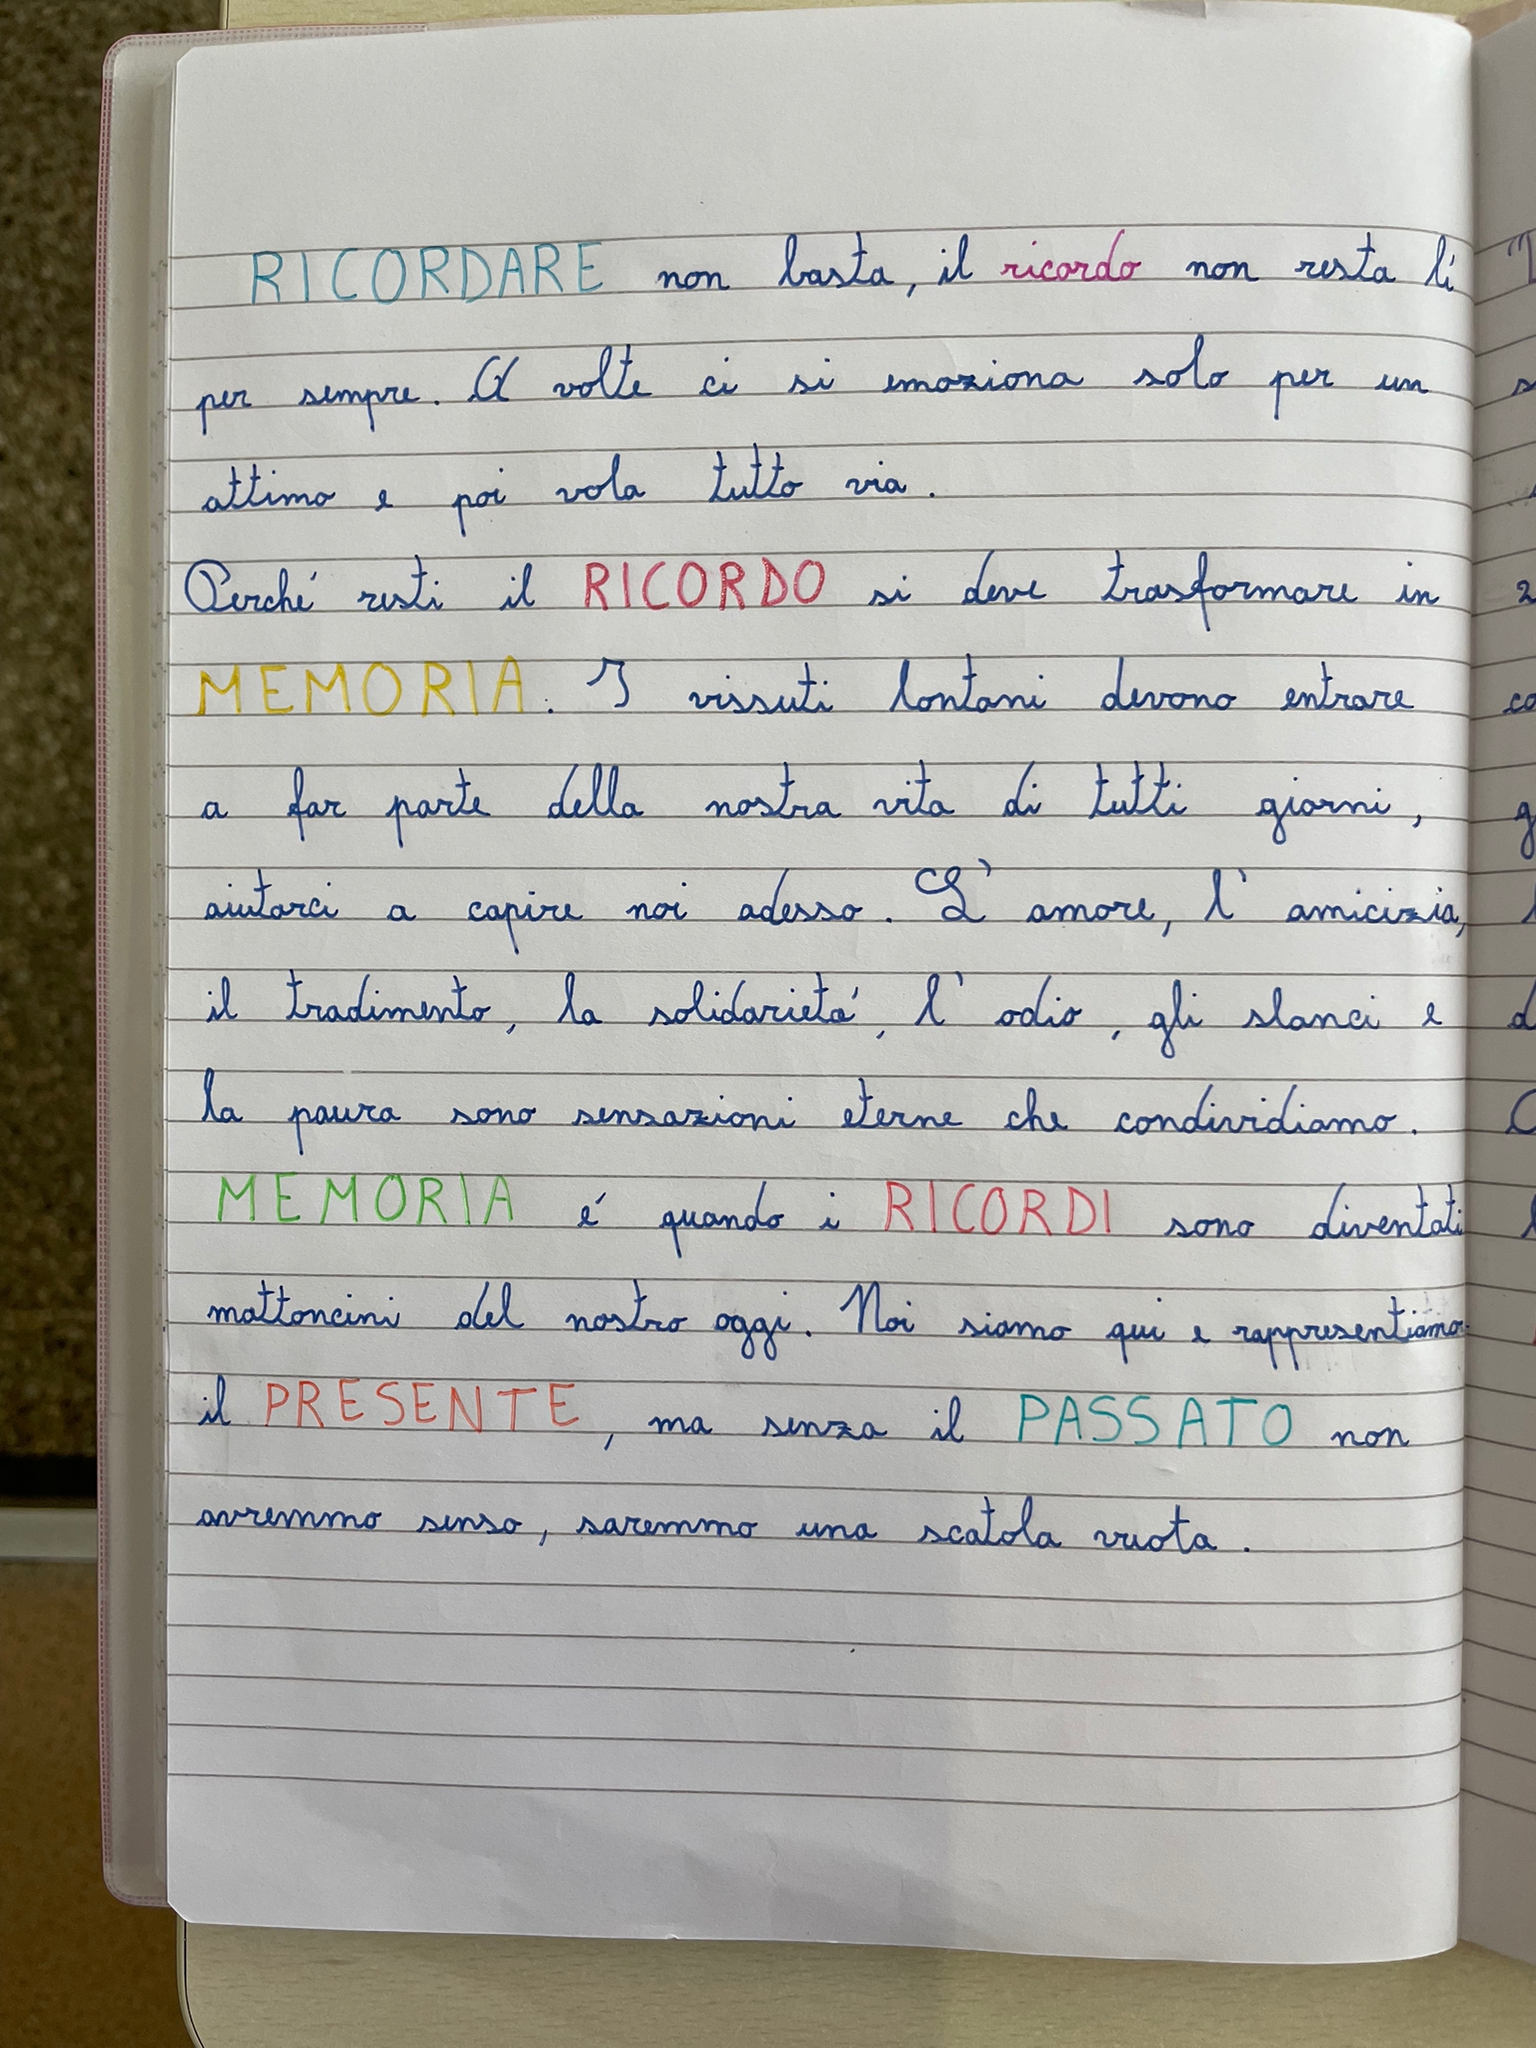 RICORDARE non basta, il ricordo non resta lí
per sempre. A volte ci si emoziona solo per un
attimo e poi vola tutto via.
Perché resti il RICORDO si deve trasformare in
MEMORIA. I vissuti lontani devono entrare
a far parte della nostra vita di tutti giorni,
aiutarci a capire noi adesso. L' amore, l' amicizia,
il tradimento, la solidarietá, l' odio, gli slanci e
la paura sono sensazioni eterne che condividiamo.
MEMORIA é quando i RICORDI sono diventati
mattoncini del nostro oggi. Noi siamo qui e rappresentiamo
il PRESENTE, ma senza il PASSATO non
avremmo senso, saremmo una scatola vuota.